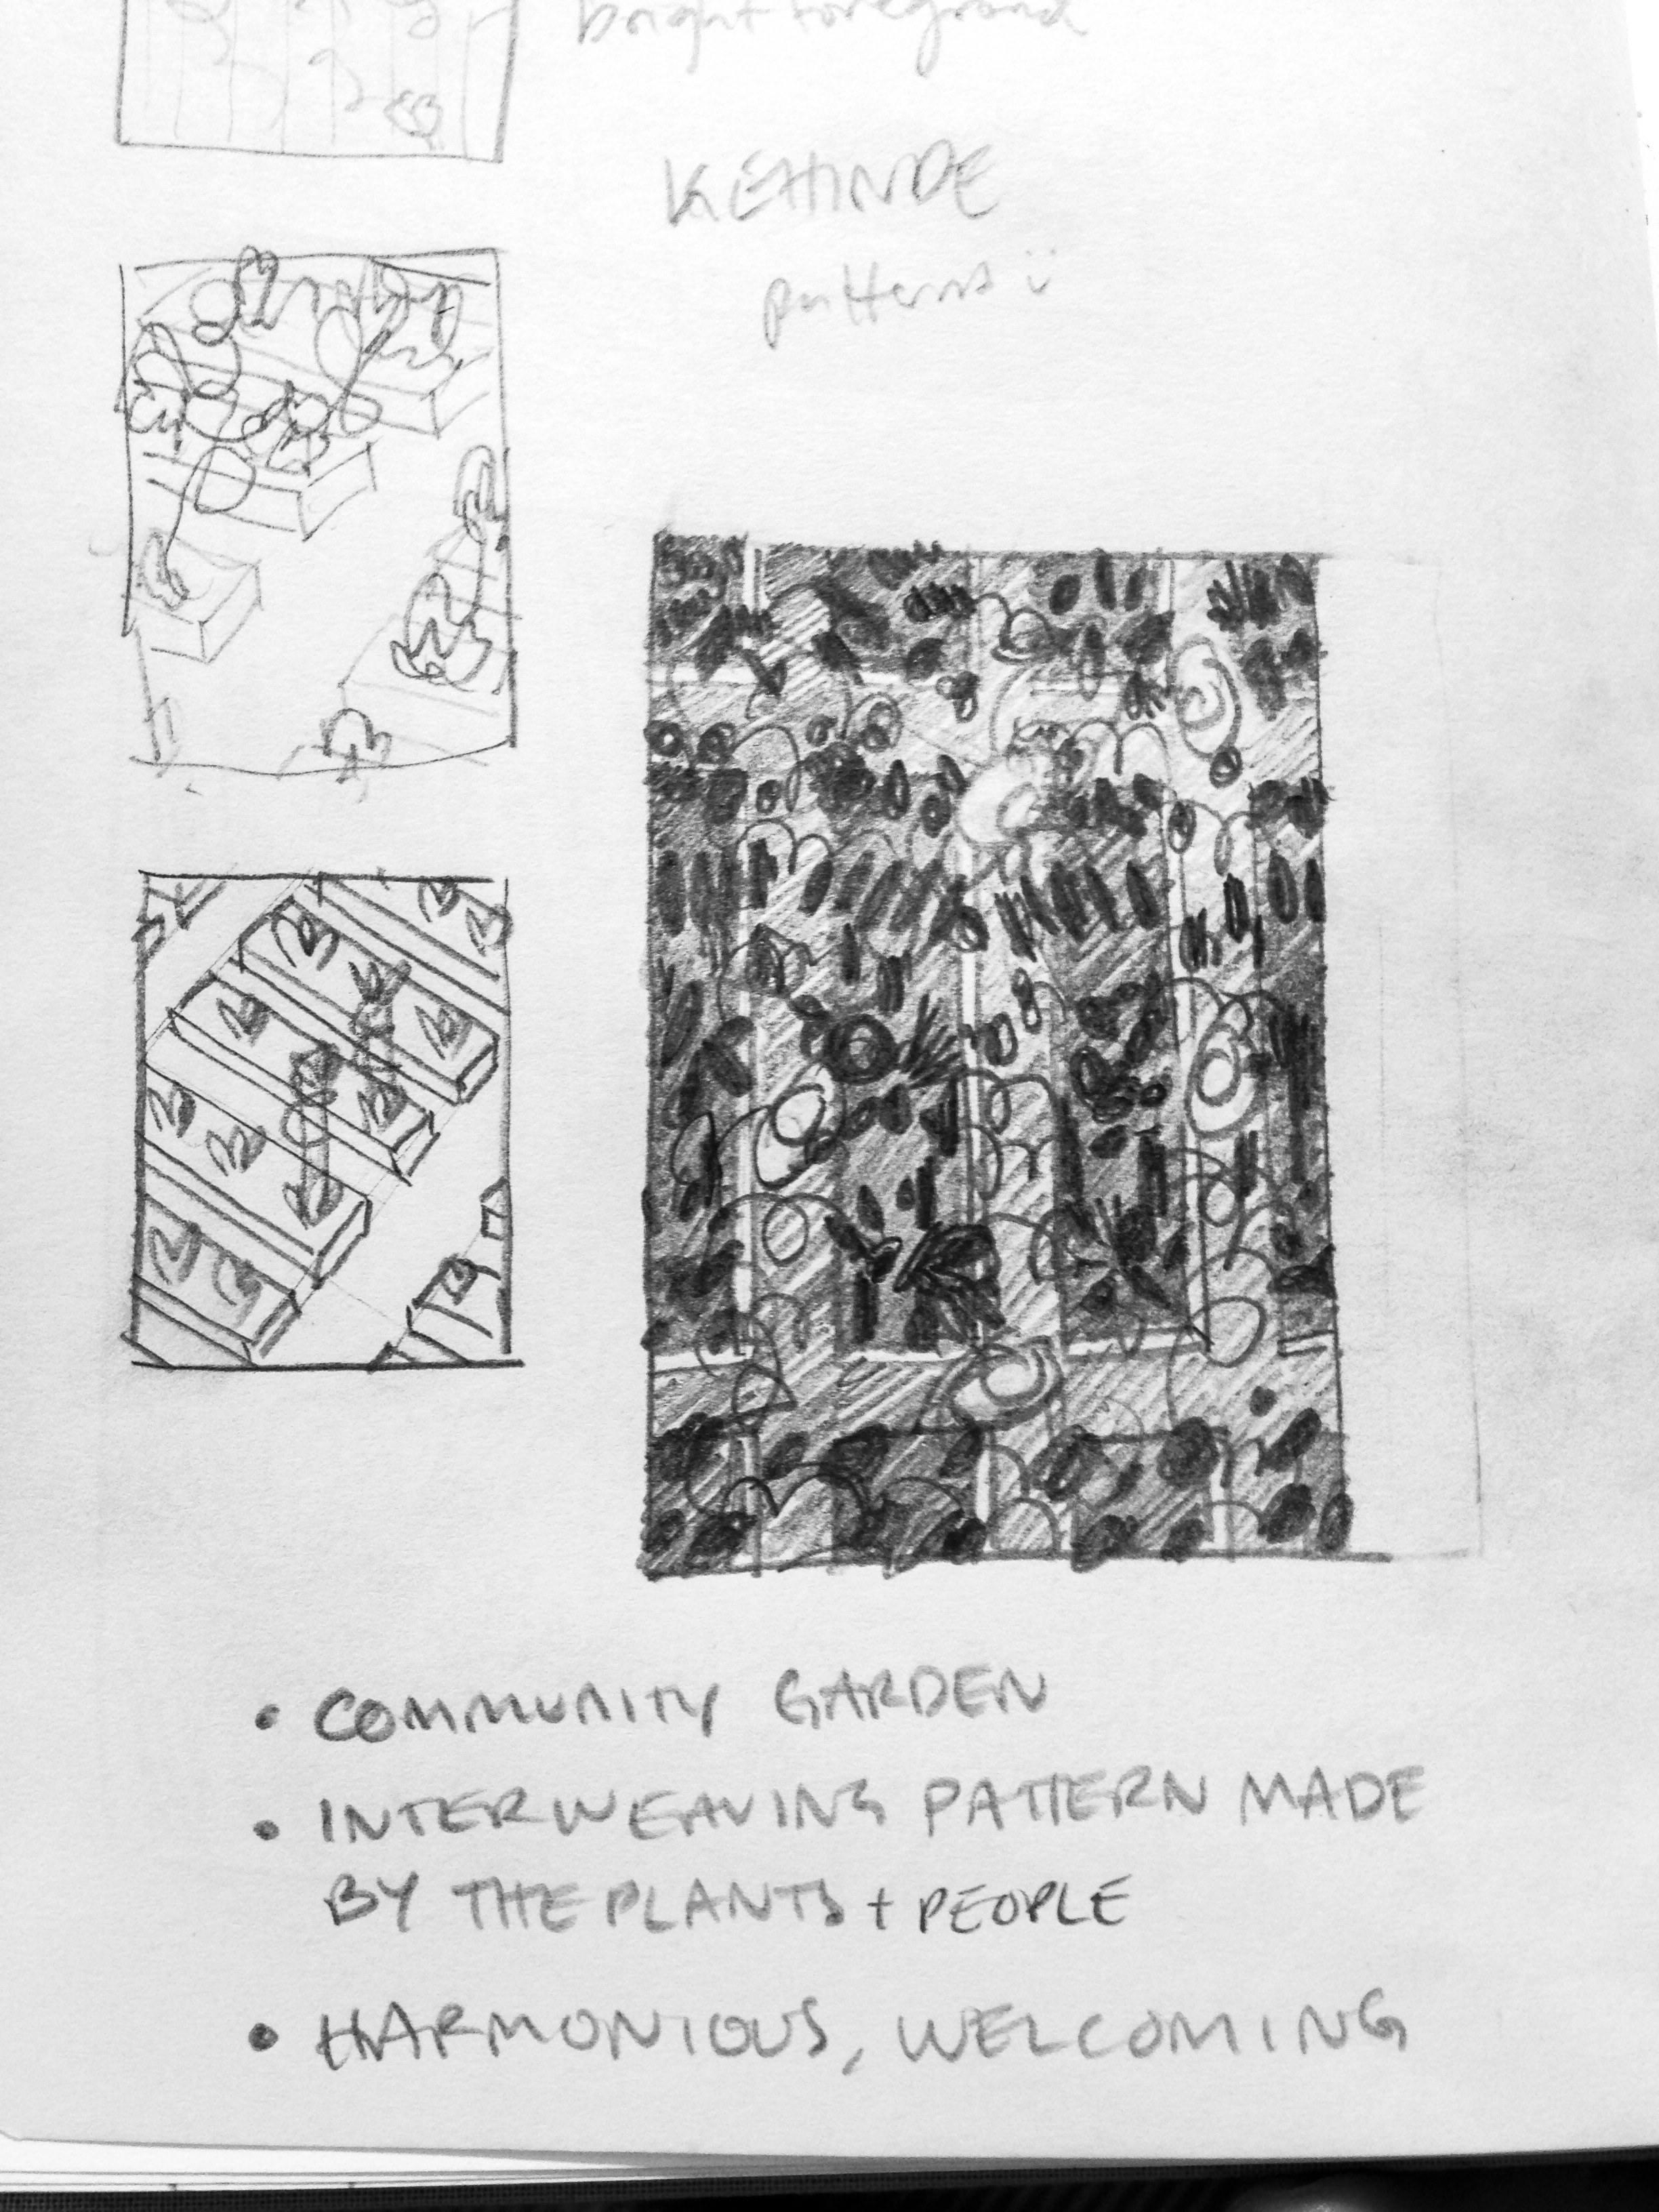 bright foreground
KEHINDE
patterns :)
• COMMUNITY GARDEN
• INTERWEAVING PATTERN MADE
BY THE PLANTS + PEOPLE
• HARMONIOUS, WELCOMING